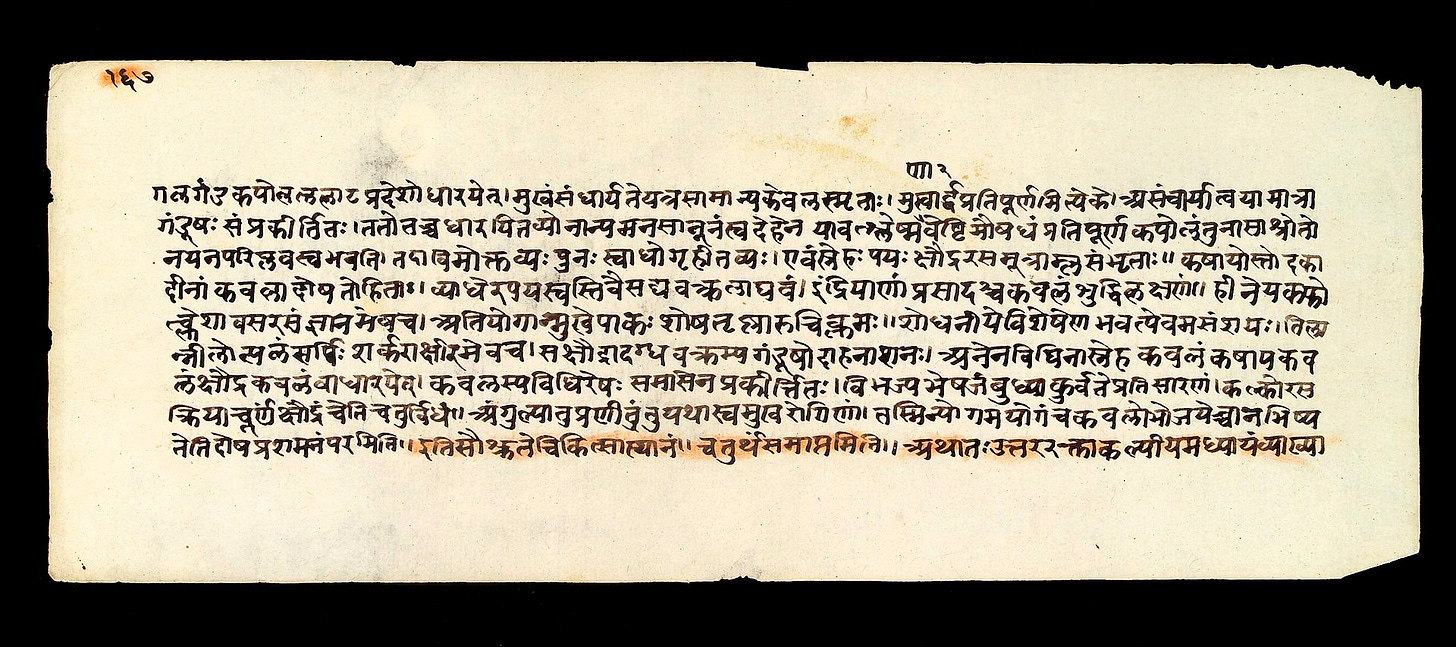 १६७
णा २
गलगंडकपोलललाटप्रदेशोधारयेत्। मुखंसंधार्यतेयत्रसामान्यकेवलस्मृताः। मुखार्द्धप्रतिपूर्णमित्येके। असंचार्यात्वयामात्रा
गंडूषः संप्रकीर्तितः। ततोतच्चधारयितव्योनान्यमनसानूनंत्वदेहेन यावत्श्लेष्मवेष्टिमौषधंप्रतिपूर्णकपोलंतुनासाश्रोतो
नयनपरिप्लवस्त्वभवति। तदाविमोक्तव्यः पुनः स्वाधोगृहीतव्यः। एवंस्नेहः पयः क्षौद्ररसमूत्राम्लसंभृताः॥ कषायोस्तोदका
दीनांकवलादोषतोहिताः। व्याधेरपचयस्त्वस्तिवैसद्यवक्त्रलाघवं। इंद्रियाणांप्रसादश्चकवलेशुद्धिलक्षणां॥ हीनेयकफो
त्क्लेशावसरसंज्ञानमेवच। अतियोगान्मुखेपाकः शोषतृष्णारुचिक्लमः॥ शोधनीयेविशेषेणभवत्येवमसंशयः। तिला
न्नीलोत्पलंसर्पिः शर्कराक्षीरमेवच। सक्षौद्रादग्धवक्त्रस्यगंडूषोदाहनाशनः। अनेनविधिनास्नेहकवलंकषायकव
लंक्षौद्रकवलंवाधारयेत्। कवलस्यविधिरेषः समासेनप्रकीर्त्तितः। विभज्यभेषजंबुध्याकुर्वतप्रतिसारणं। कल्कोरस
क्रियाचूर्णंक्षौद्रंचेतिचतुर्विधं॥ अंगुल्यातुप्रणीतुंतुयथास्वमुखरोगिणां। तस्मिन्योगमयोगंचकवलोमोजयेच्चानभिष्य
नेतिदोषप्रशमनंपरमिति॥ इतिसौश्रुतेचिकित्सास्थानं॥ चतुर्थंसमाप्तमिति॥ अथातःउत्तररक्ताकल्पीयमध्यायंव्याख्या